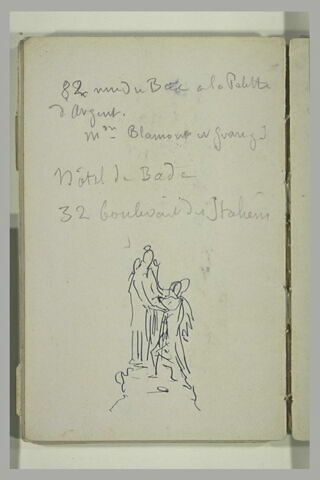 82 rue du Bac a la Palette
d'Argent.
Mon Blamont et
Hôtel de Bade
32 boulevard des Italiens